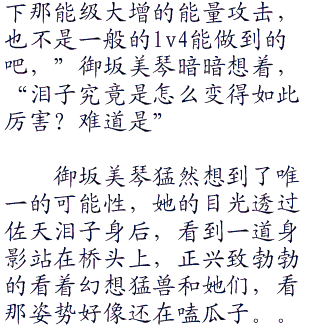 下那能级大增的能量攻击，
也不是一般的1v4能做到的
吧，”御坂美琴暗暗想着，
“泪子究竟是怎么变得如此
厉害？难道是”
御坂美琴猛然想到了唯
一的可能性，她的目光透过
佐天泪子身后，看到一道身
影站在桥头上，正兴致勃勃
的看着幻想猛兽和她们，看
那姿势好像还在嗑瓜子。。